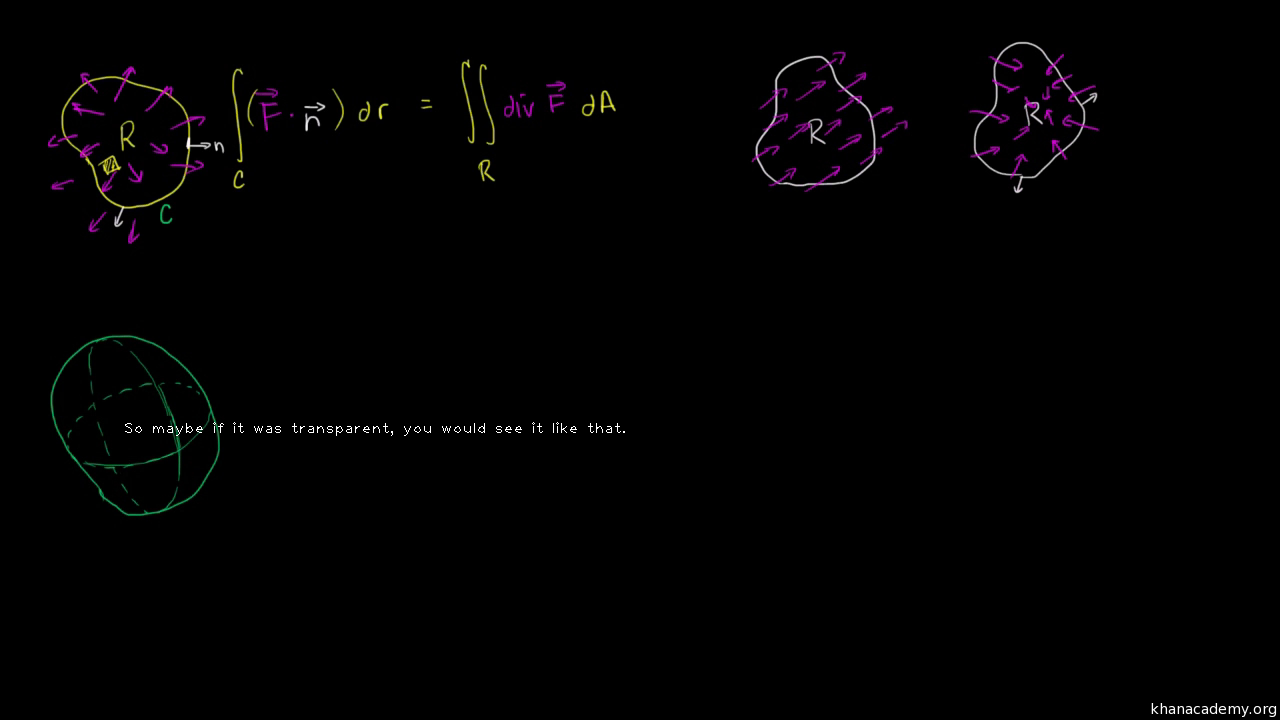 R
n
C
∫_C (F⃗ · n⃗) dr = ∬_R div F⃗ dA
R
R
So maybe if it was transparent, you would see it like that.
khanacademy.org